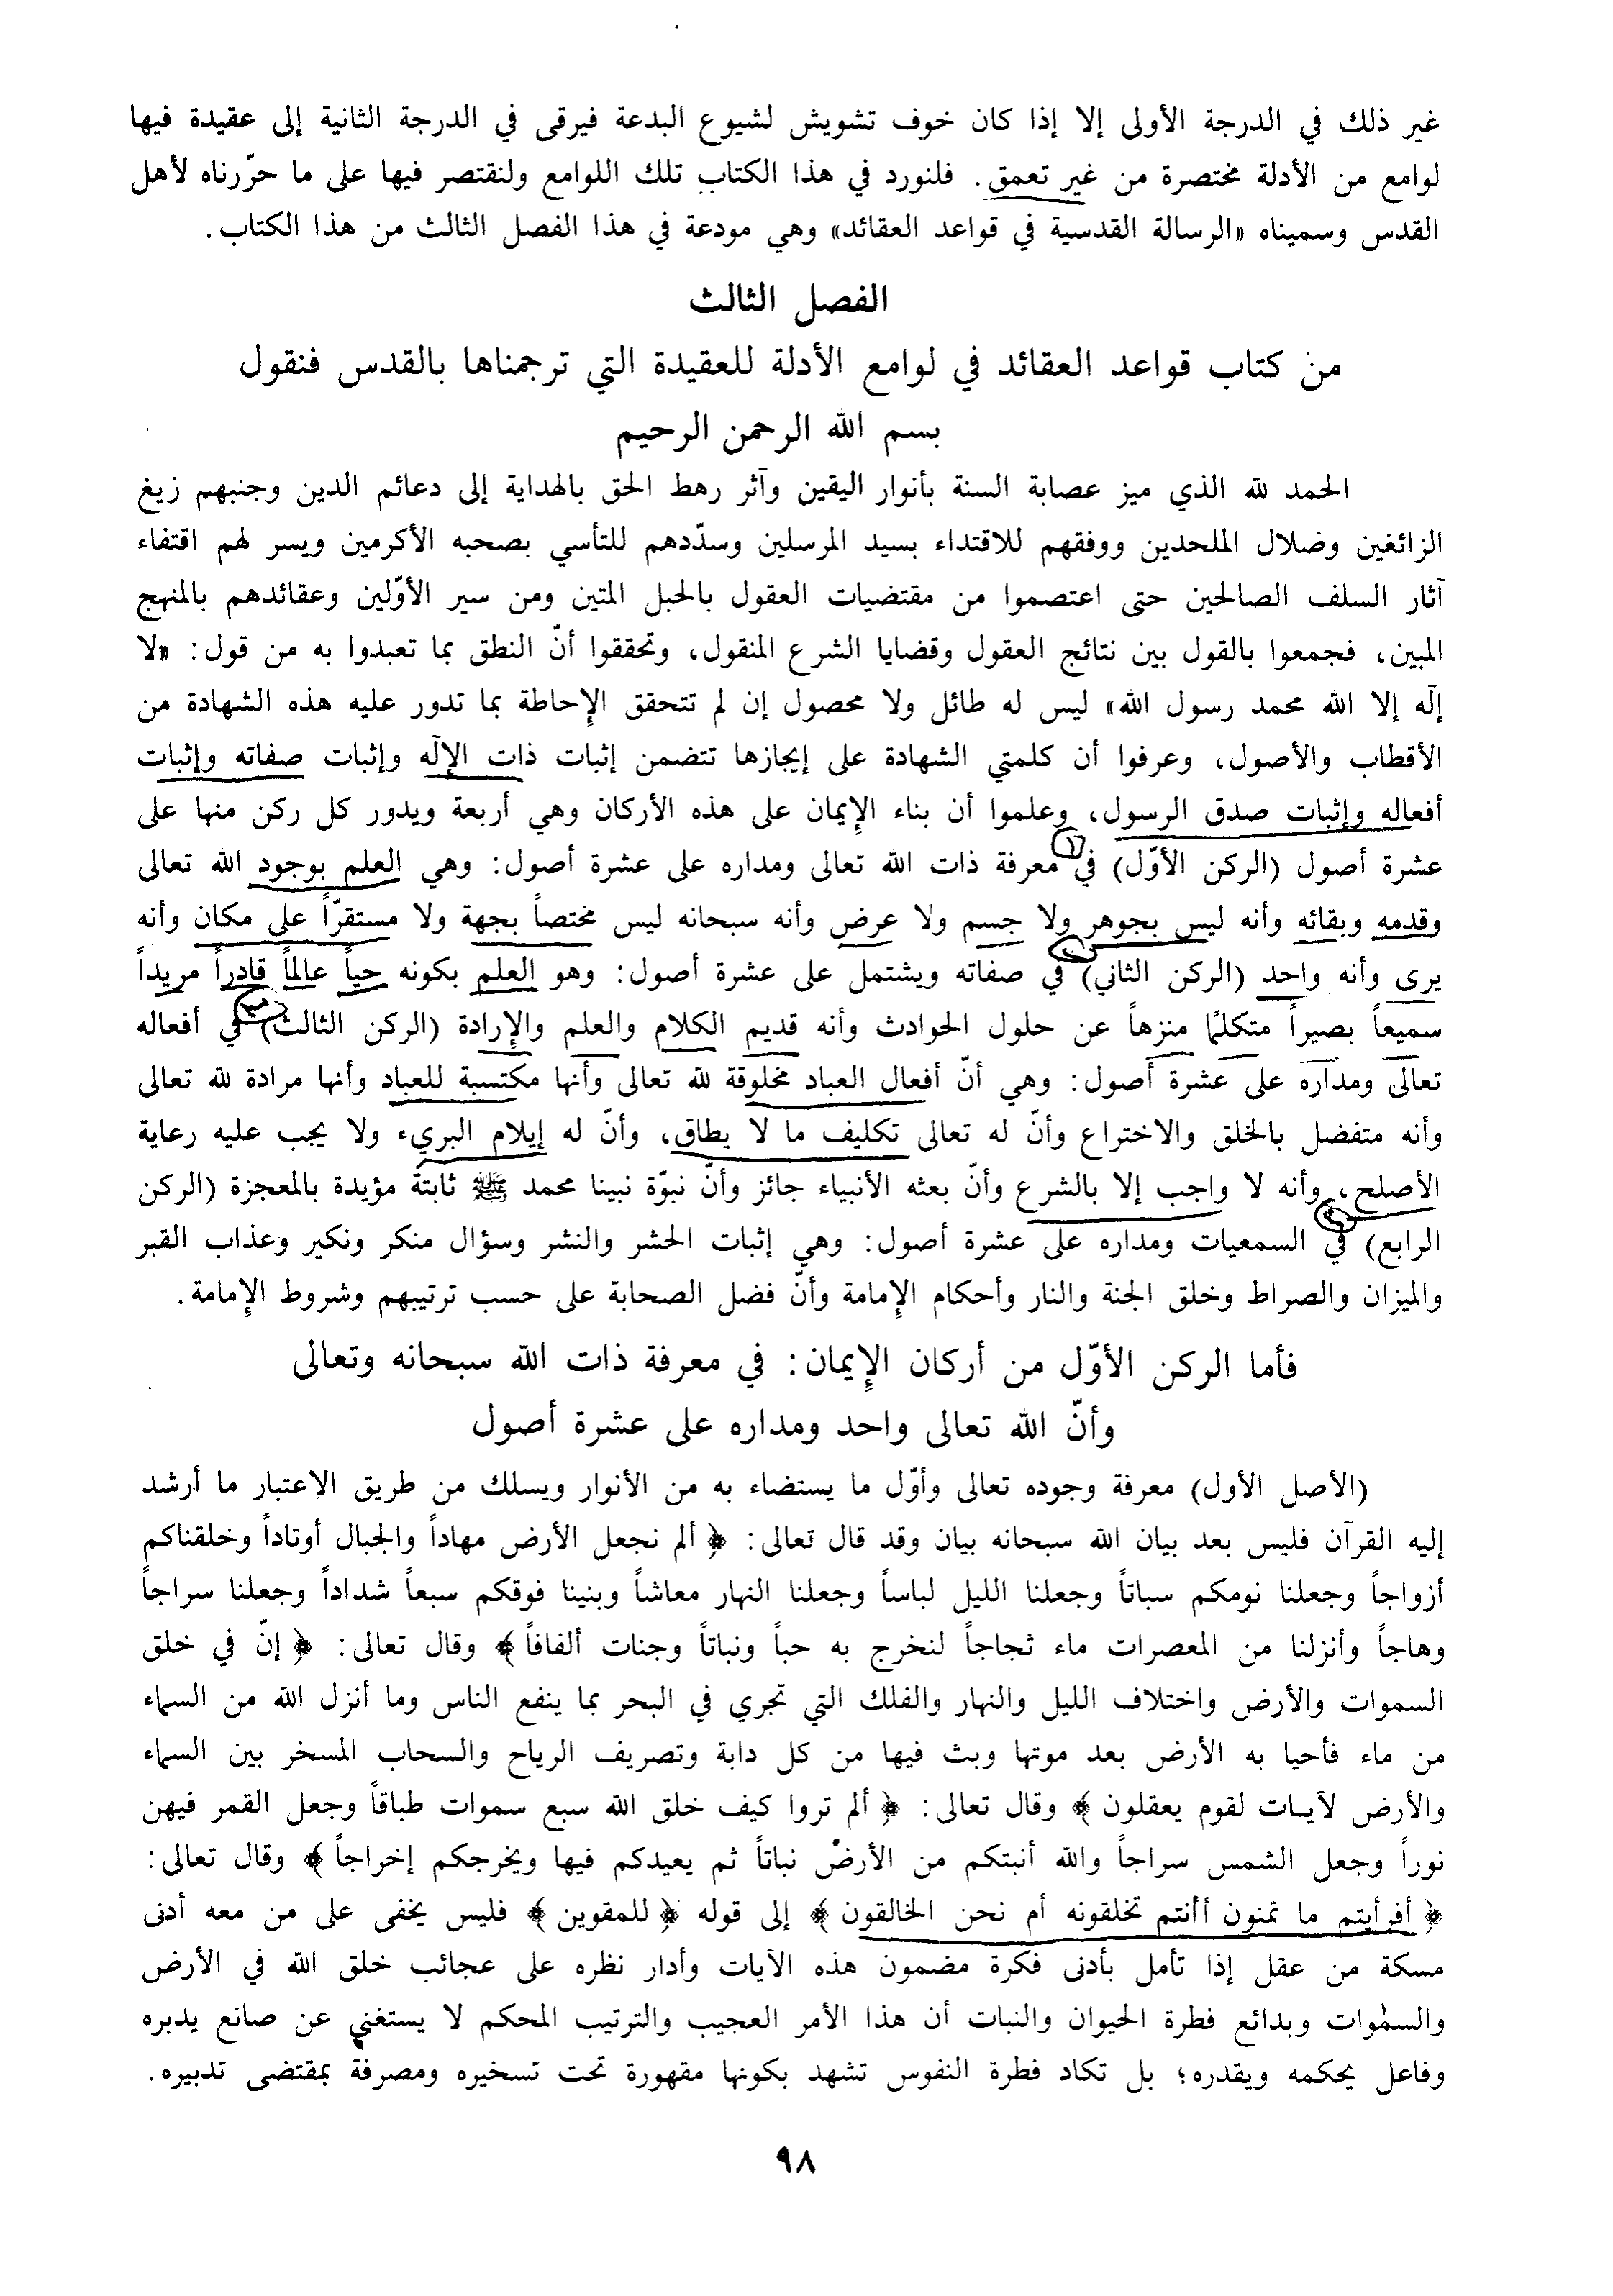 غير ذلك في الدرجة الأولى إلا إذا كان خوف تشويش لشيوع البدعة فيرقى في الدرجة الثانية إلى عقيدة فيها
لوامع من الأدلة مختصرة من غير تعمق. فلنورد في هذا الكتاب تلك اللوامع ولنقتصر فيها على ما حرّرناه لأهل
القدس وسميناه «الرسالة القدسية في قواعد العقائد» وهي مودعة في هذا الفصل الثالث من هذا الكتاب.
الفصل الثالث
من كتاب قواعد العقائد في لوامع الأدلة للعقيدة التي ترجمناها بالقدس فنقول
بسم الله الرحمن الرحيم
الحمد لله الذي ميز عصابة السنة بأنوار اليقين وآثر رهط الحق بالهداية إلى دعائم الدين وجنبهم زيغ
الزائغين وضلال الملحدين ووفقهم للاقتداء بسيد المرسلين وسدّدهم للتأسي بصحبه الأكرمين ويسر لهم اقتفاء
آثار السلف الصالحين حتى اعتصموا من مقتضيات العقول بالحبل المتين ومن سير الأوّلين وعقائدهم بالمنهج
المبين، فجمعوا بالقول بين نتائج العقول وقضايا الشرع المنقول، وتحققوا أنّ النطق بما تعبدوا به من قول: «لا
إلٓه إلا الله محمد رسول الله» ليس له طائل ولا محصول إن لم تتحقق الإحاطة بما تدور عليه هذه الشهادة من
الأقطاب والأصول، وعرفوا أن كلمتي الشهادة على إيجازها تتضمن إثبات ذات الإلٓه وإثبات صفاته وإثبات
أفعاله وإثبات صدق الرسول، وعلموا أن بناء الإيمان على هذه الأركان وهي أربعة ويدور كل ركن منها على
عشرة أصول (الركن الأوّل) في معرفة ذات الله تعالى ومداره على عشرة أصول: وهي العلم بوجود الله تعالى
وقدمه وبقائه وأنه ليس بجوهر ولا جسم ولا عرض وأنه سبحانه ليس مختصاً بجهة ولا مستقرّاً على مكان وأنه
يرى وأنه واحد (الركن الثاني) في صفاته ويشتمل على عشرة أصول: وهو العلم بكونه حياً عالماً قادراً مريداً
سميعاً بصيراً متكلمًا منزهاً عن حلول الحوادث وأنه قديم الكلام والعلم والإرادة (الركن الثالث) في أفعاله
تعالى ومداره على عشرة أصول: وهي أنّ أفعال العباد مخلوقة لله تعالى وأنها مكتسبة للعباد وأنها مرادة لله تعالى
وأنه متفضل بالخلق والاختراع وأنّ له تعالى تكليف ما لا يطاق، وأنّ له إيلام البريء ولا يجب عليه رعاية
الأصلح، وأنه لا واجب إلا بالشرع وأنّ بعثه الأنبياء جائز وأنّ نبوّة نبينا محمد ﷺ ثابتة مؤيدة بالمعجزة (الركن
الرابع) في السمعيات ومداره على عشرة أصول: وهي إثبات الحشر والنشر وسؤال منكر ونكير وعذاب القبر
والميزان والصراط وخلق الجنة والنار وأحكام الإمامة وأنّ فضل الصحابة على حسب ترتيبهم وشروط الإمامة.
فأما الركن الأوّل من أركان الإيمان: في معرفة ذات الله سبحانه وتعالى
وأنّ الله تعالى واحد ومداره على عشرة أصول
(الأصل الأول) معرفة وجوده تعالى وأوّل ما يستضاء به من الأنوار ويسلك من طريق الإعتبار ما أرشد
إليه القرآن فليس بعد بيان الله سبحانه بيان وقد قال تعالى: ﴿ألم نجعل الأرض مهاداً والجبال أوتاداً وخلقناكم
أزواجاً وجعلنا نومكم سباتاً وجعلنا الليل لباساً وجعلنا النهار معاشاً وبنينا فوقكم سبعاً شداداً وجعلنا سراجاً
وهاجاً وأنزلنا من المعصرات ماء ثجاجاً لنخرج به حباً ونباتاً وجنات ألفافاً﴾ وقال تعالى: ﴿إنّ في خلق
السموات والأرض واختلاف الليل والنهار والفلك التي تجري في البحر بما ينفع الناس وما أنزل الله من السماء
من ماء فأحيا به الأرض بعد موتها وبث فيها من كل دابة وتصريف الرياح والسحاب المسخر بين السماء
والأرض لآيات لقوم يعقلون﴾ وقال تعالى: ﴿ألم تروا كيف خلق الله سبع سموات طباقاً وجعل القمر فيهن
نوراً وجعل الشمس سراجاً والله أنبتكم من الأرض نباتاً ثم يعيدكم فيها ويخرجكم إخراجاً﴾ وقال تعالى:
﴿أفرأيتم ما تمنون أأنتم تخلقونه أم نحن الخالقون﴾ إلى قوله ﴿للمقوين﴾ فليس يخفى على من معه أدنى
مسكة من عقل إذا تأمل بأدنى فكرة مضمون هذه الآيات وأدار نظره على عجائب خلق الله في الأرض
والسمٰوات وبدائع فطرة الحيوان والنبات أن هذا الأمر العجيب والترتيب المحكم لا يستغني عن صانع يدبره
وفاعل يحكمه ويقدره؛ بل تكاد فطرة النفوس تشهد بكونها مقهورة تحت تسخيره ومصرفة بمقتضى تدبيره.
٩٨